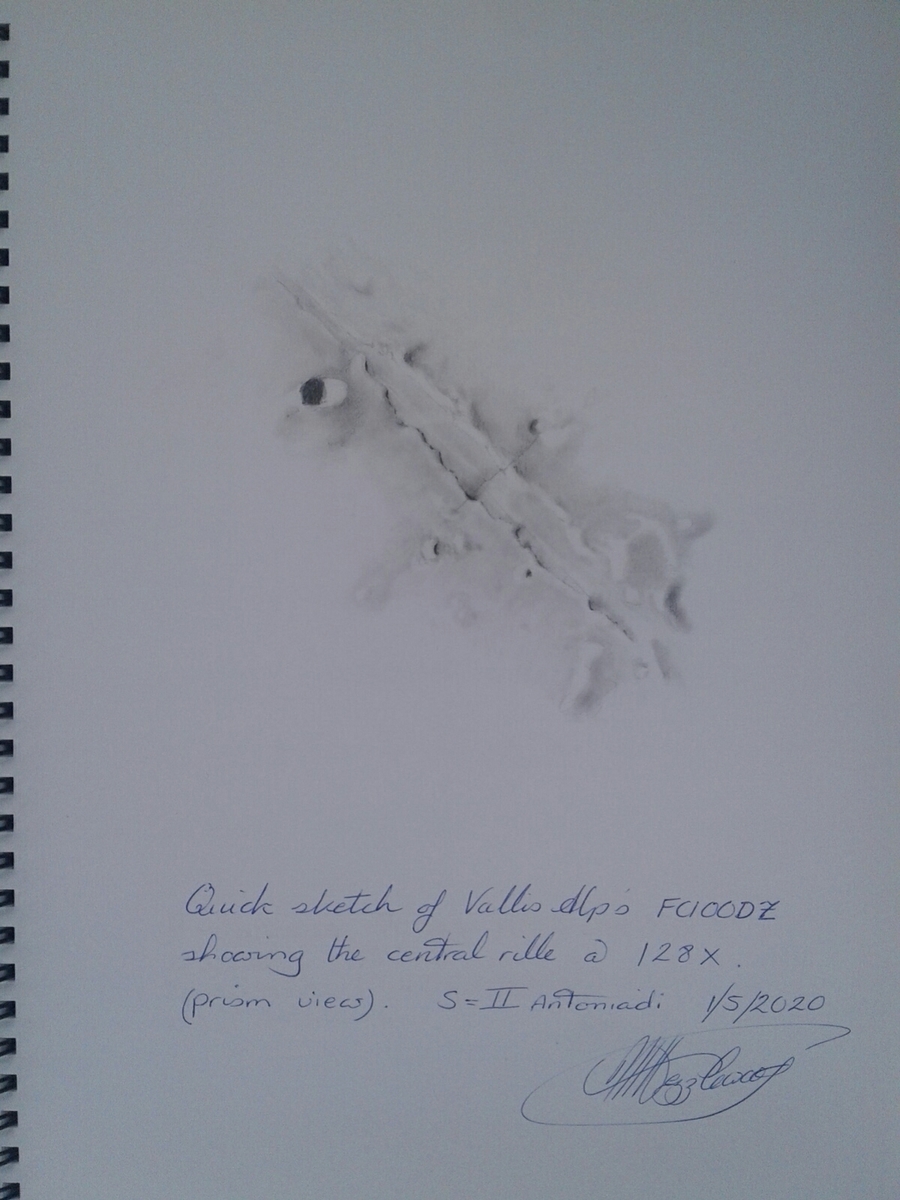 Quick sketch of Vallis Alp's FC100DZ
showing the central rille @ 128x.
(prism view). S=II Antoniadi 1/5/2020